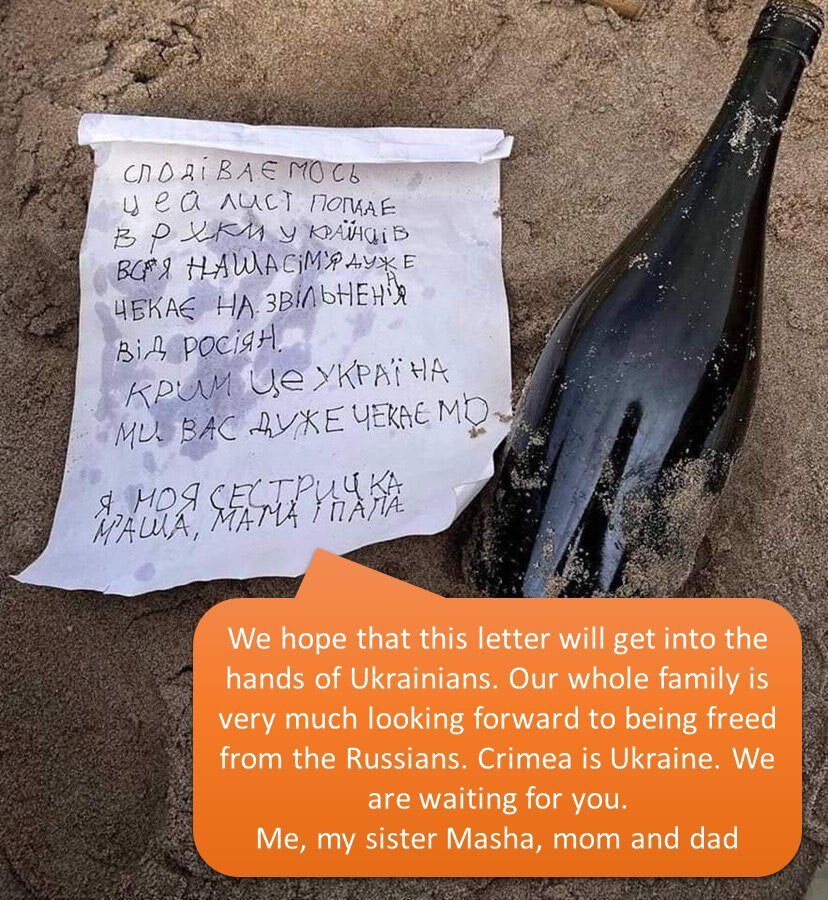 СПОДІВАЄМОСЬ
ЦЕЙ ЛИСТ ПОПАДЕ
В РУКИ УКРАЇНЦІВ
ВСЯ НАША СІМ'Я ДУЖЕ
ЧЕКАЄ НА ЗВІЛЬНЕННЯ
ВІД РОСІЯН.
КРИМ ЦЕ УКРАЇНА
МИ ВАС ДУЖЕ ЧЕКАЄМО
Я МОЯ СЕСТРИЧКА
МАША, МАМА І ПАПА
We hope that this letter will get into the
hands of Ukrainians. Our whole family is
very much looking forward to being freed
from the Russians. Crimea is Ukraine. We
are waiting for you.
Me, my sister Masha, mom and dad